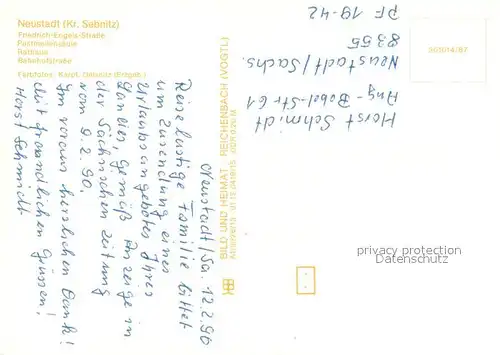 Neustadt (Kr. Sebnitz)
Friedrich-Engels-Straße
Postmeilensäule
Rathaus
Bahnhofstraße
Farbfotos: Kampf, Oelsnitz (Erzgeb.)
Neustadt/Sa. 12.2.90
Reiselustige Familie bittet
um Zusendung eines
Urlaubsangebotes Ihres
Gemäß Anzeige in
der Sächsischen Zeitung
vom 9.2.90.
Im voraus herzlichen Dank!
Mit freundlichen Grüssen!
Horst Schmidt
BILD UND HEIMAT REICHENBACH (VOGTL)
Horst Schmidt
Aug-Bebel-Str 61
Neustadt/Sachs.
8355
PF 19-42
privacy protection
for personal data